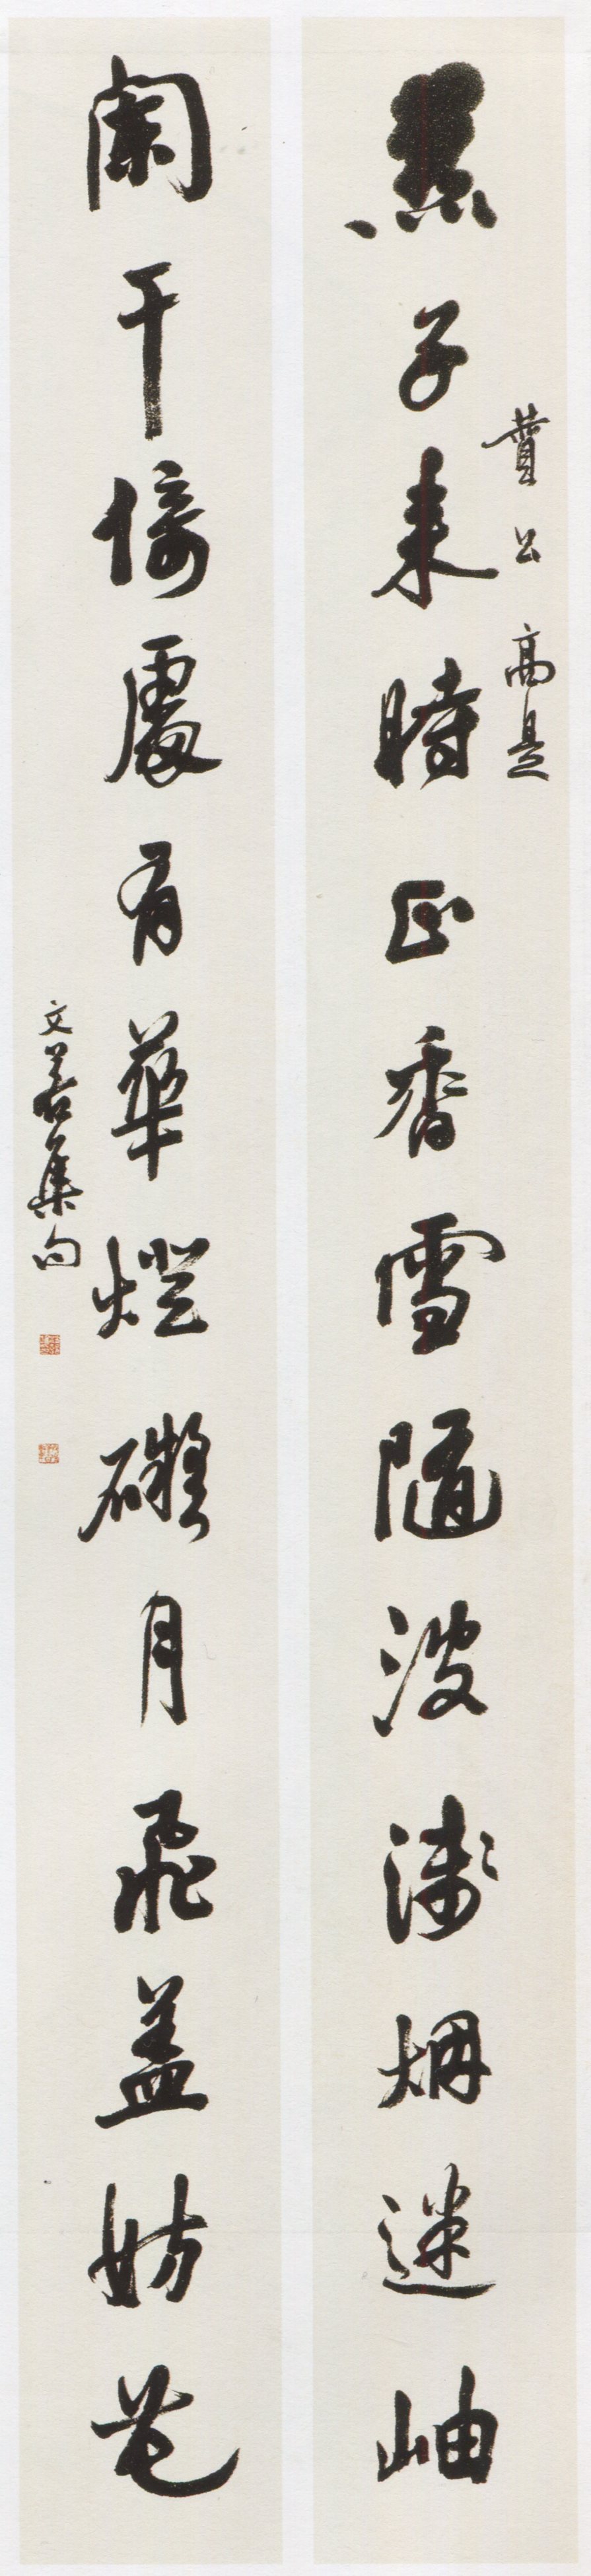 燕子来時正香雪隨波淺烟迷岫
蕢公高是
闌干倚處有華燈礙月飛盖妨花
文若集句